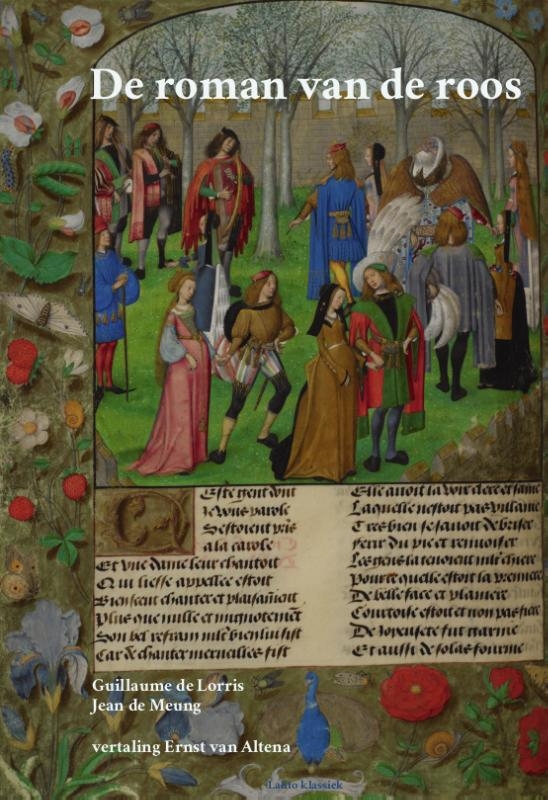 De roman van de roos
Ceste gent dont
Je vous parole
Sestoient pris
a la carole
Et une dame leur chantoit
Qui liesse appellee estoit
Bien scent chanter et
Plus que nulle et mignotement
Son bel refrain mlt bien lui sist
Car de chanter merveilles fist
Elle avoit la voix clere et saine
Laquelle nestoit pas vilaine
Tres bien se savoit debriser
Ferir du pie et renvoiser
Les gens la tenoient mlt chiere
quelle estoit la premiere
De belle face et planiere
Courtoise estoit et non pas fiere
De fut
Et aussi de solas
Guillaume de Lorris
Jean de Meung
vertaling Ernst van Altena
Lalito klassiek